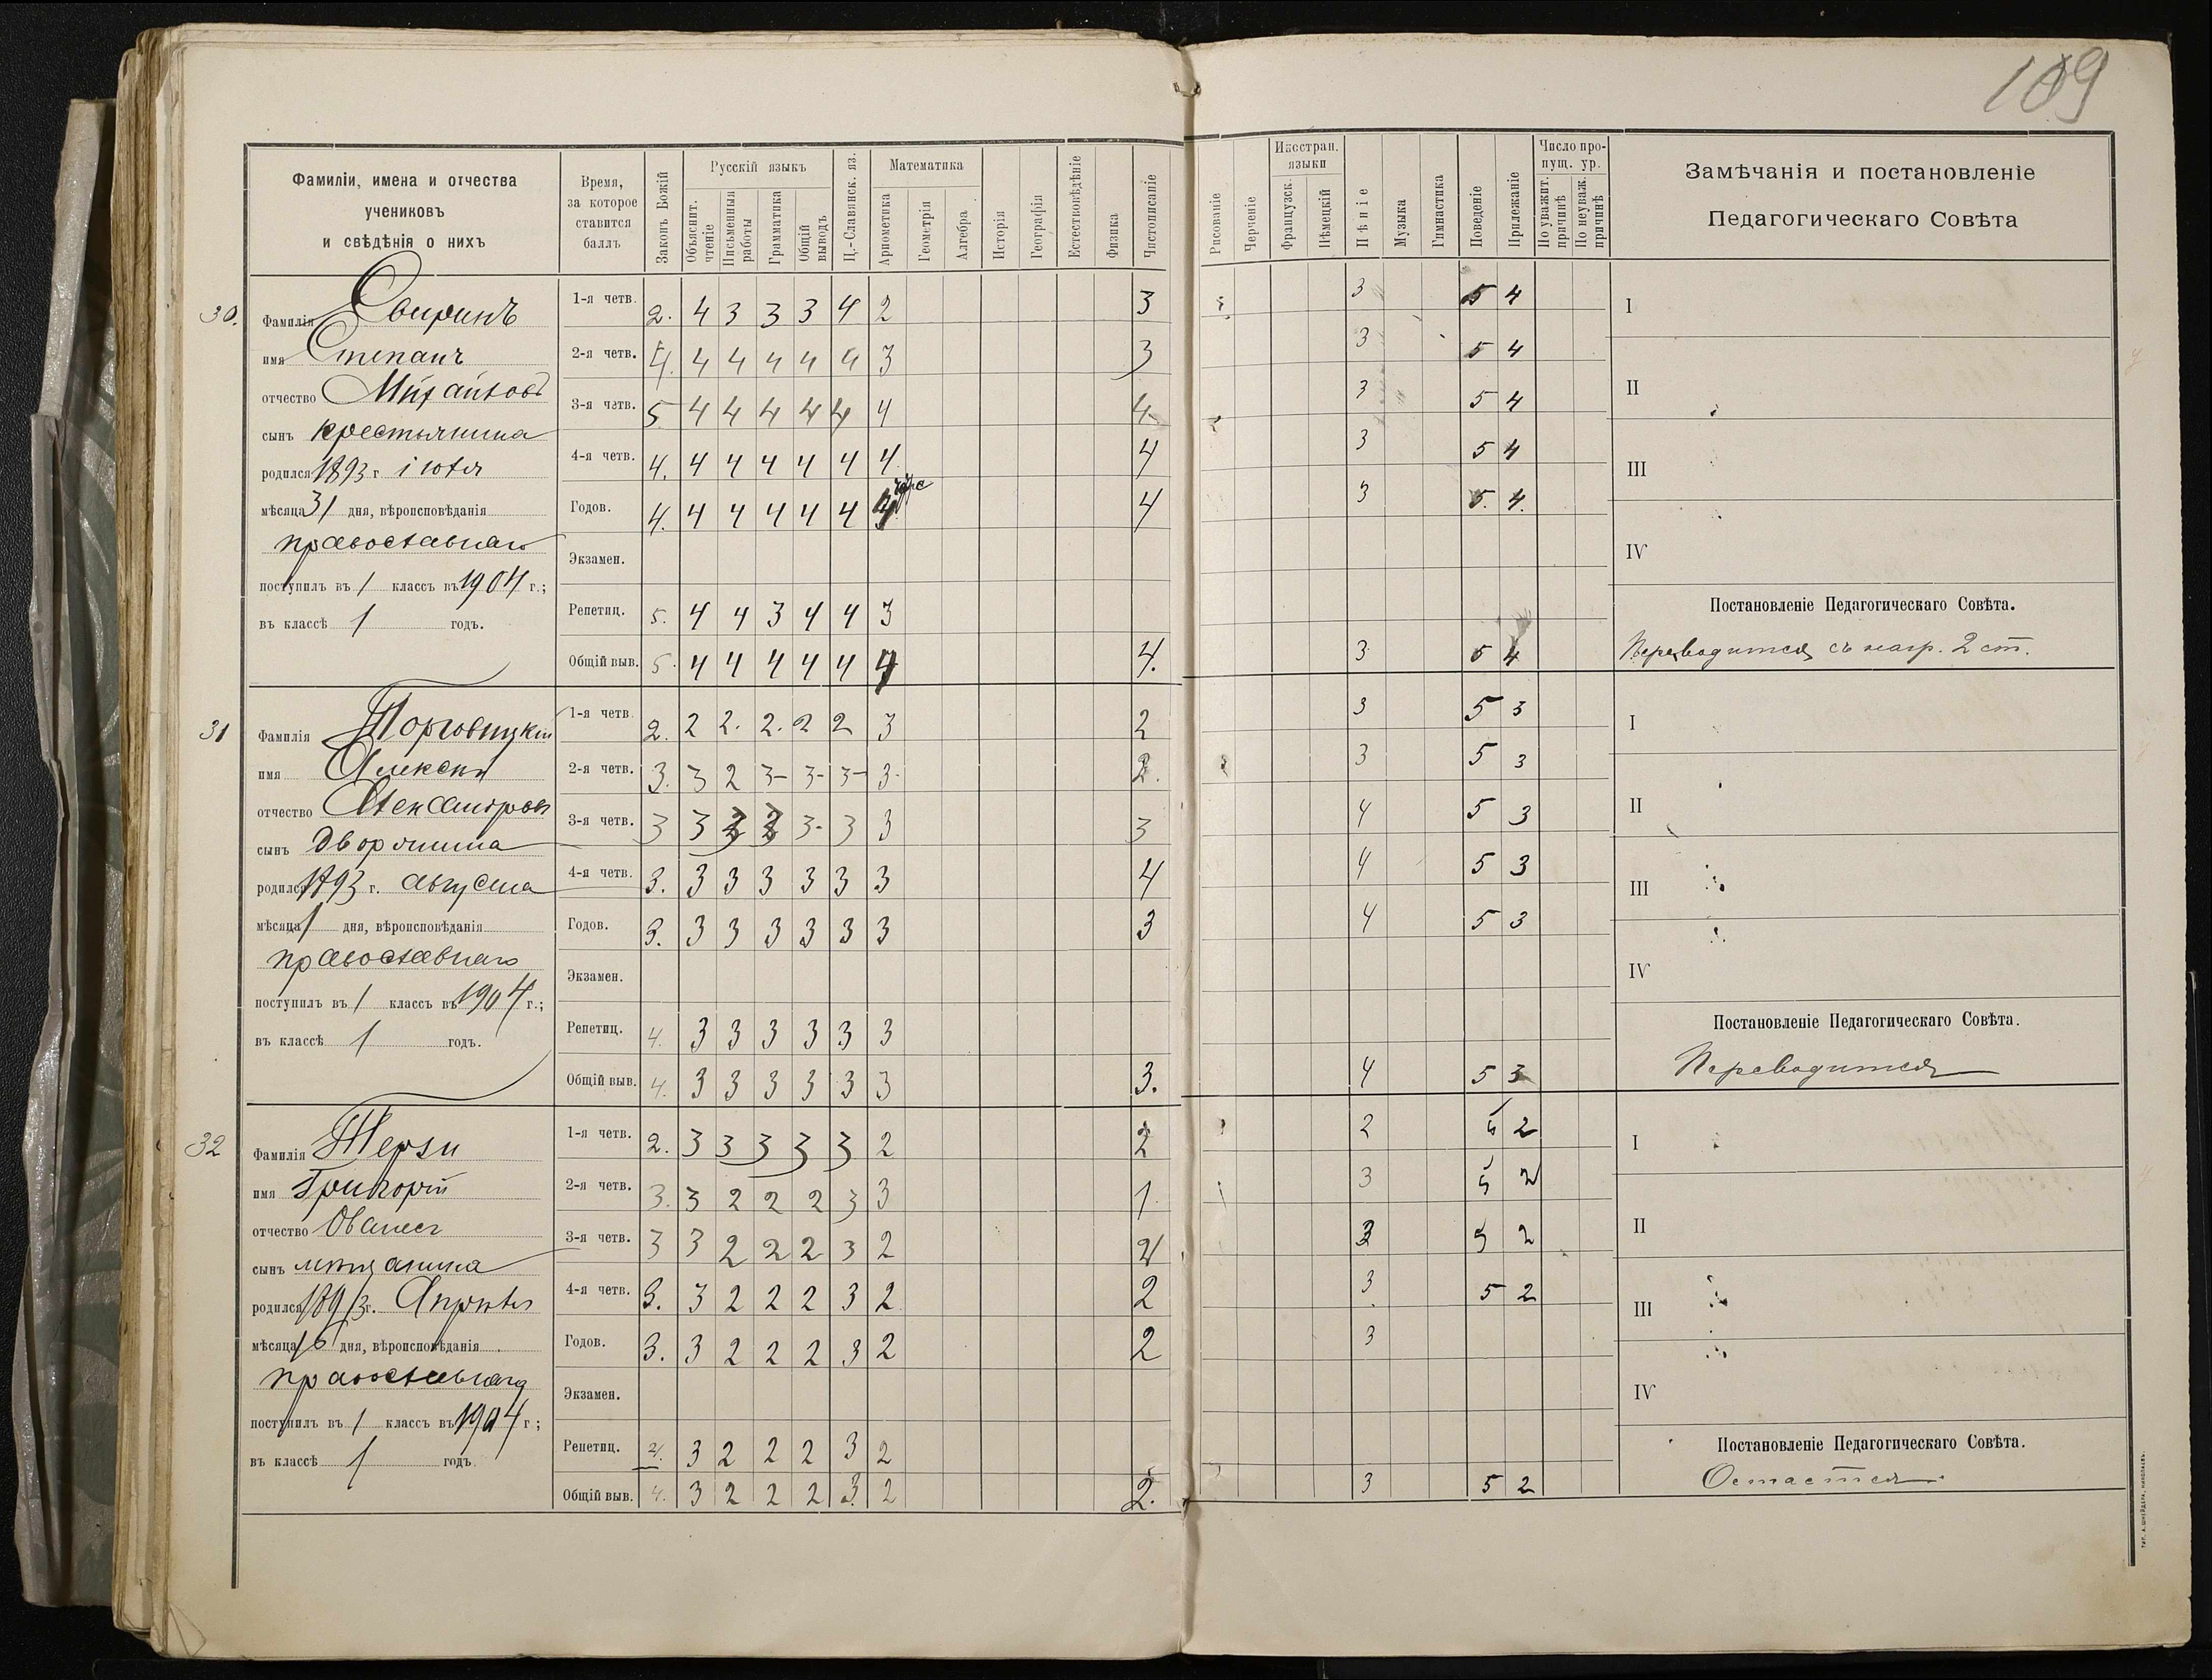 109
Фамиліи, имена и отчества
учениковъ
и свѣдѣнія о нихъ
Время,
за которое
ставится
баллъ
Законъ Божій
Русскій языкъ
Объяснит. чтеніе
Письменныя работы
Грамматика
Общій выводъ
Ц.-Славянск. яз.
Математика
Ариѳметика
Геометрія
Алгебра
Исторія
Географія
Естествовѣдѣніе
Физика
Чистописаніе
Рисованіе
Черченіе
Иностран. языки
Французск.
Нѣмецкій
Пѣніе
Музыка
Гимнастика
Поведеніе
Прилежаніе
Число пропущ. ур.
По уважит. причинѣ
По неуваж. причинѣ
Замѣчанія и постановленіе
Педагогическаго Совѣта
30.
Фамилія Свиринъ
имя Степанъ
отчество Михайловъ
сынъ крестьянина
родился 1893 г. іюля
мѣсяца 31 дня, вѣроисповѣданія
православнаго
поступилъ въ 1 классъ въ 1904 г.;
въ классѣ 1 годъ.
1-я четв. 2. 4 3 3 3 4 2 3 3 5 4 I
2-я четв. 4. 4 4 4 4 4 3 3 3 5 4 II
3-я четв. 5 4 4 4 4 4 4 4 3 5 4
4-я четв. 4. 4 4 4 4 4 4 4 3 5 4 III
Годов. 4. 4 4 4 4 4 4 3 5. 4.
Экзамен. IV
Репетиц. 5. 4 4 3 4 4 3
Постановленіе Педагогическаго Совѣта.
Общій выв. 5. 4 4 4 4 4 4 4. 3 5 4 Переводится съ нагр. 2 ст.
31
Фамилія Торговицкій
имя Алексѣй
отчество Александровъ
сынъ дворянина
родился 1893 г. августа
мѣсяца 1 дня, вѣроисповѣданія
православнаго
поступилъ въ 1 классъ въ 1904 г.;
въ классѣ 1 годъ.
1-я четв. 2. 2 2. 2. 2 2 3 2 3 5 3 I
2-я четв. 3. 3 2 3- 3- 3- 3- 2. 3 5 3
3-я четв. 3 3 3 3 3- 3 3 3 4 5 3 II
4-я четв. 3. 3 3 3 3 3 3 4 4 5 3 III
Годов. 3. 3 3 3 3 3 3 3 4 5 3
Экзамен. IV
Репетиц. 4. 3 3 3 3 3 3
Постановленіе Педагогическаго Совѣта.
Общій выв. 4. 3 3 3 3 3 3 3. 4 5 3 Переводится
32
Фамилія Терзи
имя Григорій
отчество Ованес
сынъ мѣщанина
родился 1893 г. Апрѣля
мѣсяца 16 дня, вѣроисповѣданія
православнаго
поступилъ въ 1 классъ въ 1904 г;
въ классѣ 1 годъ.
1-я четв. 2. 3 3 3 3 3 2 2 2 5 2 I
2-я четв. 3. 3 2 2 2 3 3 1 3 5 2
3-я четв. 3 3 2 2 2 3 2 2 3 5 2 II
4-я четв. 3. 3 2 2 2 3 2 2 3 5 2 III
Годов. 3. 3 2 2 2 3 2 2 3
Экзамен. IV
Репетиц. 3 2 2 2 3 2
Постановленіе Педагогическаго Совѣта.
Общій выв. 4. 3 2 2 2 3 2 2. 3 5 2 Остается
ТИП. А. ШНЕЙДЕРА, НИКОЛАЕВЪ.